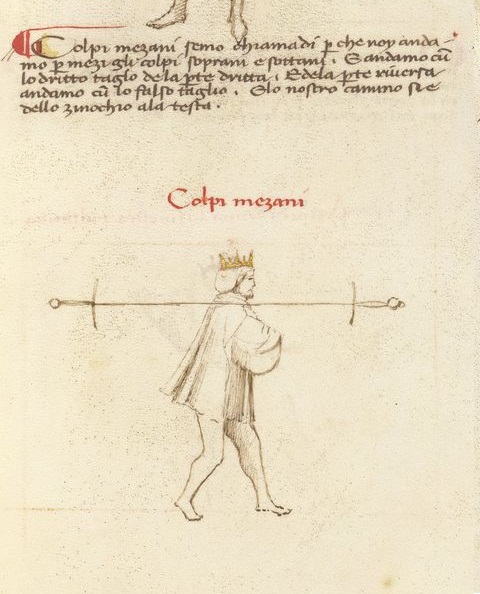 Colpi mezani semo chiamadi ꝑ che noy anda-
mo ꝑ mezi gli colpi soprani e sottani. E andamo cū
lo dritto taglo de la ꝑte dritta. E de la ꝑte riversa
andamo cū lo falso taglio. E lo nostro camino si e
dello zinochio ala testa.
Colpi mezani